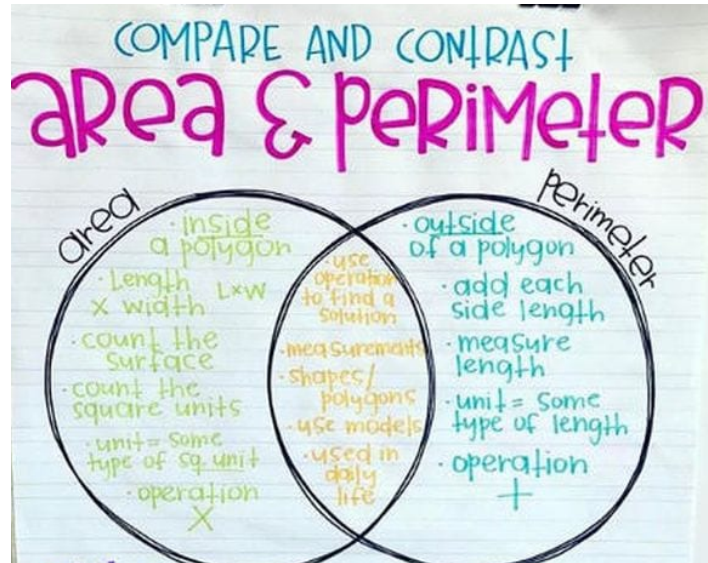 COMPARE AND CONTRAST
aRea & PeRiMeteR
area
perimeter
· inside
a polygon
· Length
x width LxW
· count the
surface
· count the
square units
· unit = some
type of sq. unit
· operation
X
· use
operation
to find a
solution
· measurements
· shapes/
polygons
· use models
· used in
daily
life
· outside
of a polygon
· add each
side length
· measure
length
· unit = some
type of length
· operation
+